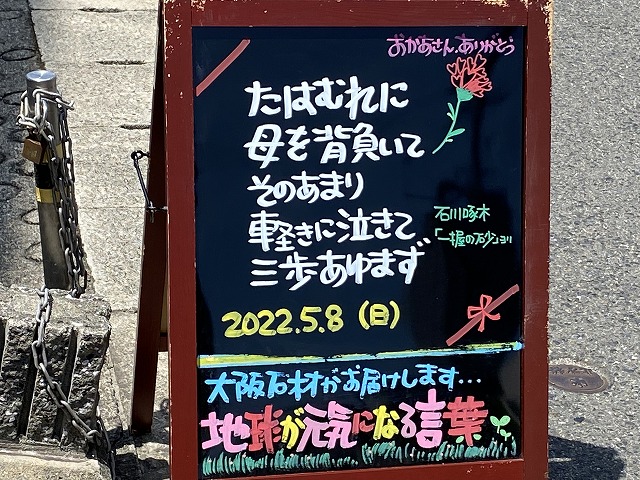 おかあさん、ありがとう
たはむれに
母を背負いて
そのあまり
軽きに泣きて
三歩あゆまず
石川啄木
「一握の砂」ヨリ
2022.5.8(日)
大阪石材がお届けします...
地球が元気になる言葉